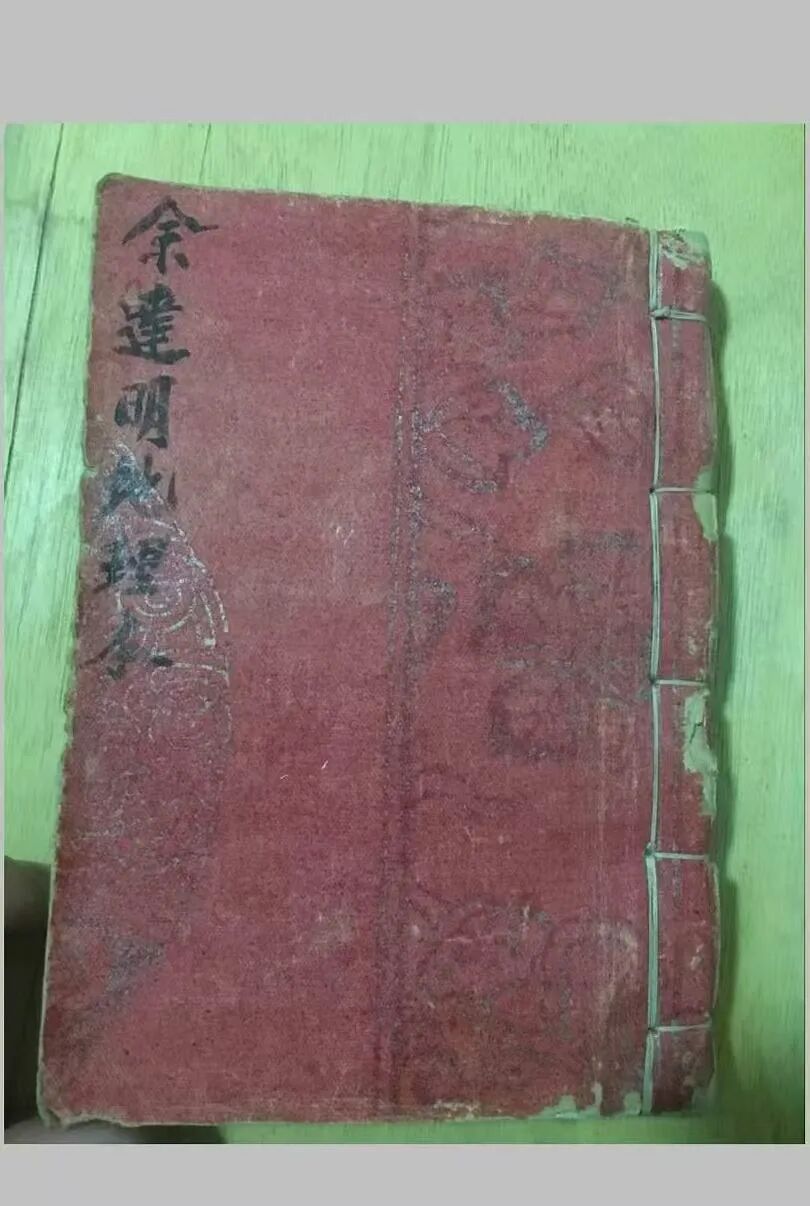 余達明地理本